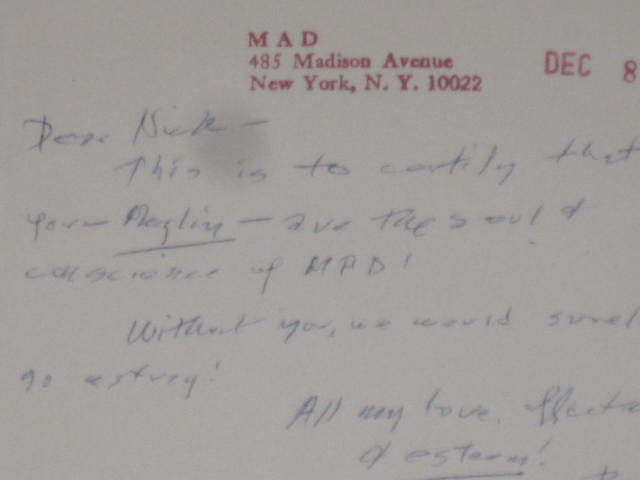 MAD
485 Madison Avenue
New York, N. Y. 10022
DEC 8
Dear Nick —
This is to certify that
your Meglin — are the soul &
conscience of MAD!
Without you, we would surel
go astray!
All my love, affecta
& esteem!